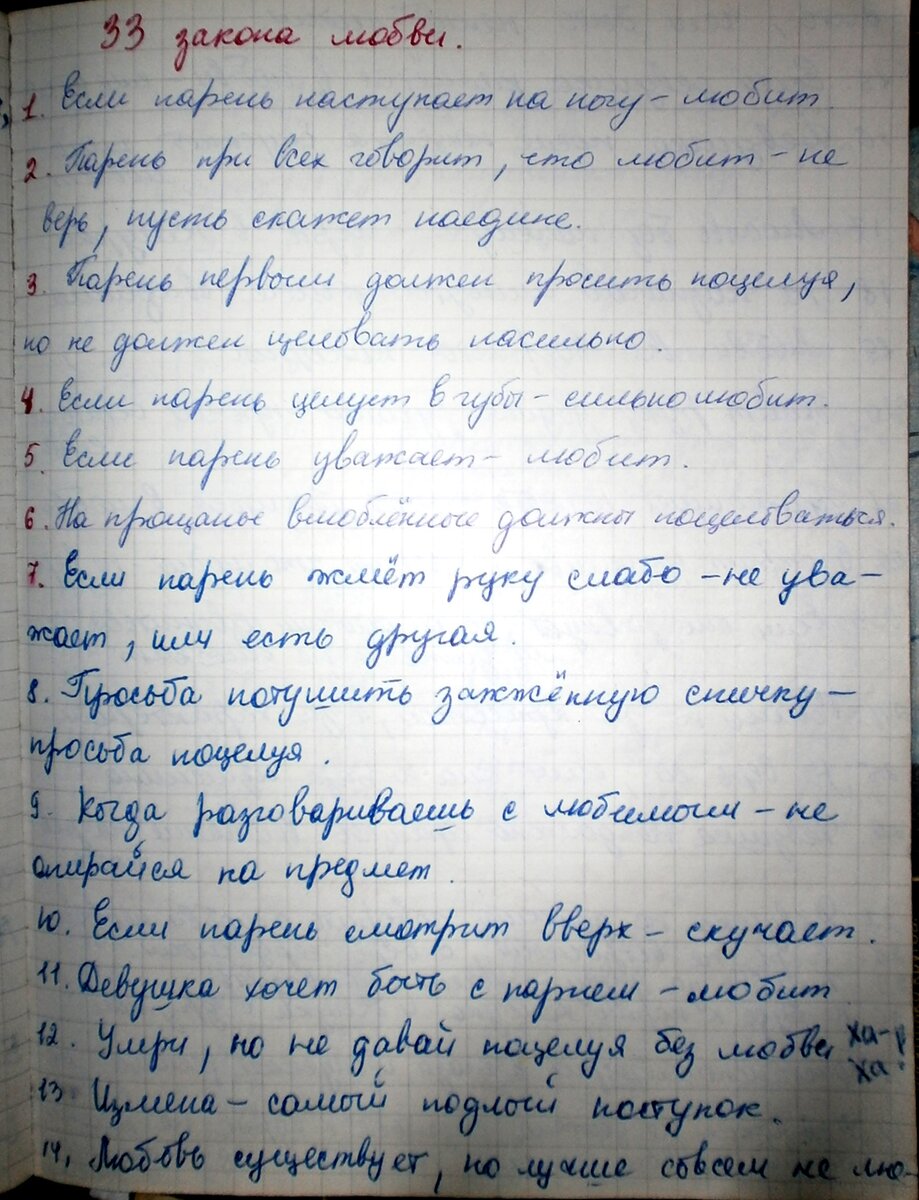 33 закона любви.
1. Если парень наступает на ногу – любит.
2. Парень при всех говорит, что любит – не
верь, пусть скажет наедине.
3. Парень первым должен просить поцелуя,
но не должен целовать насильно.
4. Если парень целует в губы – сильно любит.
5. Если парень уважает – любит.
6. На прощанье влюблённые должны поцеловаться.
7. Если парень жмёт руку слабо – не ува–
жает, или есть другая.
8. Просьба потушить зажжённую спичку –
просьба поцелуя.
9. Когда разговариваешь с любимым – не
опирайся на предмет.
10. Если парень смотрит вверх – скучает.
11. Девушка хочет быть с парнем – любит
12. Умри, но не давай поцелуя без любви ха-
ха
13 Измена – самый подлый поступок.
14. Любовь существует, но лучше совсем не лю-